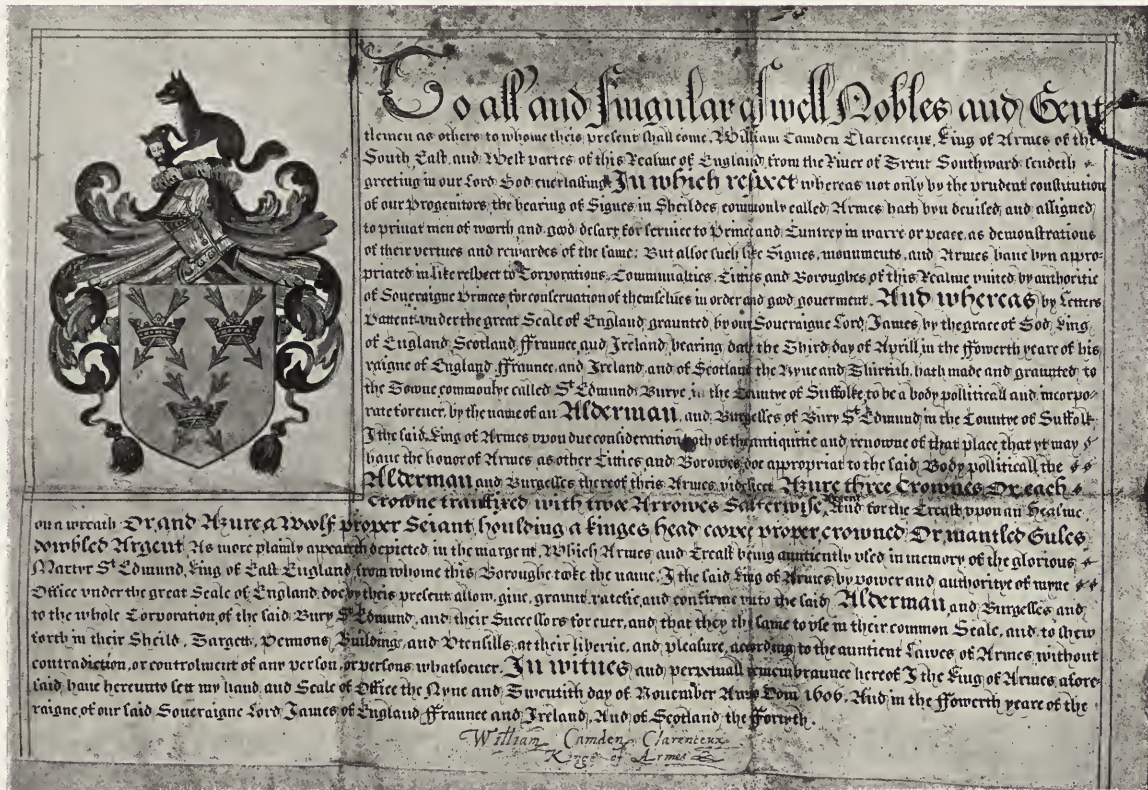 To all and singular aswell Nobles and Gent
tlemen as others to whome theis present shall come, William Camden Clarenceux, King of Armes of the
South, East, and West partes of this Realme of England, from the River of Trent Southward sendeth
greeting in our Lord God everlasting. In which respect whereas not only by the prudent constitution
of our Progenitors, the bearing of Signes in Sheildes commonly called Armes hath byn devised, and assigned
to privat men of worth and good desart for service to Prince and Cuntrey in warre or peace, as demonstrations
of their vertues and rewardes of the same: But allso such like Signes, monuments, and Armes have byn appro-
priated in like respect to Corporations, Communalties, Citties and Boroughes of this Realme united by authoritie
of Soveraigne Princes for conservation of themselves in order and good goverment. And whereas by Letters
Pattent under the great Seale of England graunted by our Soveraigne Lord, James, by the grace of God, King
of England Scotland, ffraunce, and Ireland, bearing day, the Third day of Aprill, in the ffowerth yeare of his
raigne of England ffraunce, and Ireland, and of Scotland the Nyne and Thirtith, hath made and graunted to
the Towne commonlye called St. Edmunds Burye, in the Countye of Suffolke, to be a body politicall and incorpo-
rate for ever, by the name of an Alderman, and Burgesses of Bury St. Edmund, in the Countye of Suffolk.
I the said King of Armes upon due consideration both of the antiquitie and renowne of that place that yt may
have the honor of Armes as other Citties and Borowes, doe appropriat to the said Body politicall, the
Alderman and Burgesses thereof theis Armes, videlicet Azure three Crownes Or, each
crowne transfixed with twoe Arrowes Salterwise, Argent And for the Creast uppon an Healme
on a wreath Or, and Azure a Woolf proper Seiant, houlding a kinges head coupe, proper, crowned Or, mantled Gules
dowbled Argent, As more plainly appeareth depicted, in the margent, Which Armes and Creast being aunciently used in memory of the glorious
Martyr St. Edmund, King of East England, from whome this Boroughe tooke the name, I the said King of Armes, by power and authoritye of myne
Office under the great Seale of England doe by theis present allow, give, graunt, ratefie, and confirme unto the said Alderman, and Burgesses and
to the whole Corporation of the said Bury St. Edmund, and their Successors for ever, and that they the same to use in their common Seale, and to shew
forth in their Sheild, Targett, Pennons, Buildings, and Utensills, at their libertie, and pleasure, according to the auntient Lawes of Armes without
contradiction, or controlment of any person, or persons whatsoever. In witnes and perpetuall remembraunce hereof I the King of Armes, afore-
said, have hereunto sett my hand, and Seale of Office the Nyne and Twentith day of November Anno Dom 1606. And in the ffowerth yeare of the
raigne, of our said Soveraigne Lord, James, of England ffraunce and Ireland, And of Scotland the fforyth.
William Camden Clarenceux
Kinge of Armes